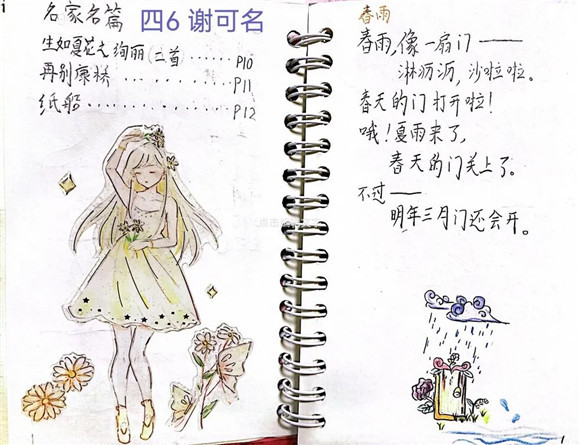 名家名篇
四6 谢可名
生如夏花之绚丽(二首)......P10
再别康桥............P11
纸船............P12
春雨
春雨,像一扇门——
淋沥沥,沙啦啦。
春天的门打开啦!
哦!夏雨来了,
春天的门关上了。
不过——
明年三月门还会开。